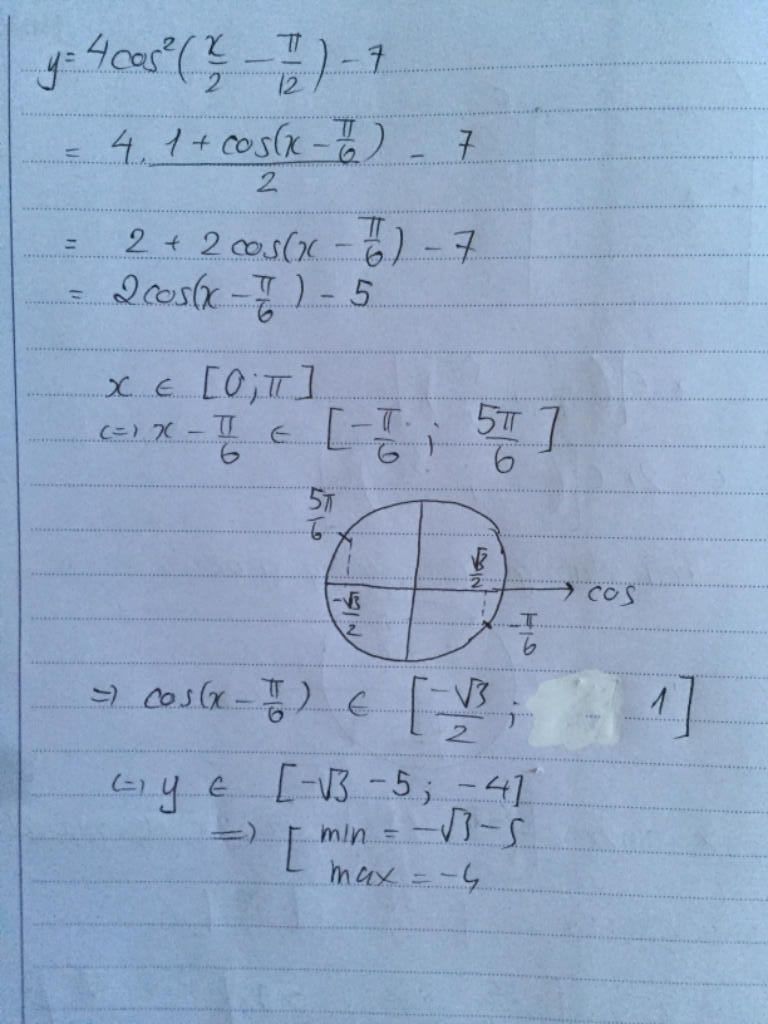 y = 4cos²(x/2 − π/12) − 7
= 4. (1 + cos(x − π/6))/2 − 7
= 2 + 2cos(x − π/6) − 7
= 2cos(x − π/6) − 5
x ∈ [0; π]
<=> x − π/6 ∈ [−π/6; 5π/6]
5π/6
√3/2
cos
−√3/2
−π/6
=> cos(x − π/6) ∈ [−√3/2; 1]
<=> y ∈ [−√3 − 5; −4]
=> [ min = −√3 − 5
max = −4